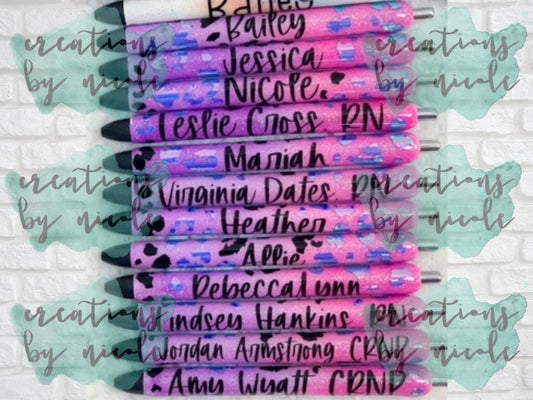 Bailey
Jessica
Nicole
Leslie Cross RN
Mariah
Virginia Dates RN
Heather
Allie
RebeccaLynn
Lindsey Hankins RN
Jordan Armstrong CRNP
Amy Wyatt CRNP
creations
by nicole
creations
by nicole
creations
by nicole
creations
by nicole
creations
by nicole
creations
by nicole